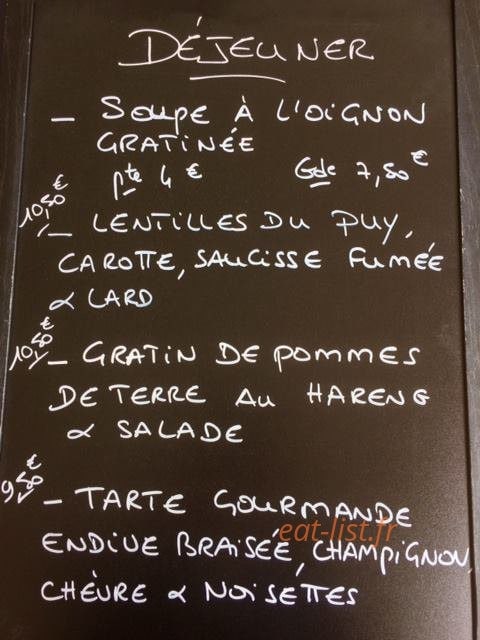 DÉJEUNER
- SOUPE À L'OIGNON
GRATINÉE
Pte 4 € Gde 7,80 €
10,50 € - LENTILLES DU PUY,
CAROTTE, SAUCISSE FUMÉE
& LARD
10,50 € - GRATIN DE POMMES
DE TERRE AU HARENG
& SALADE
9,50 € - TARTE GOURMANDE
eat-list.fr
ENDIVE BRAISÉE, CHAMPIGNON,
CHÈVRE & NOISETTES